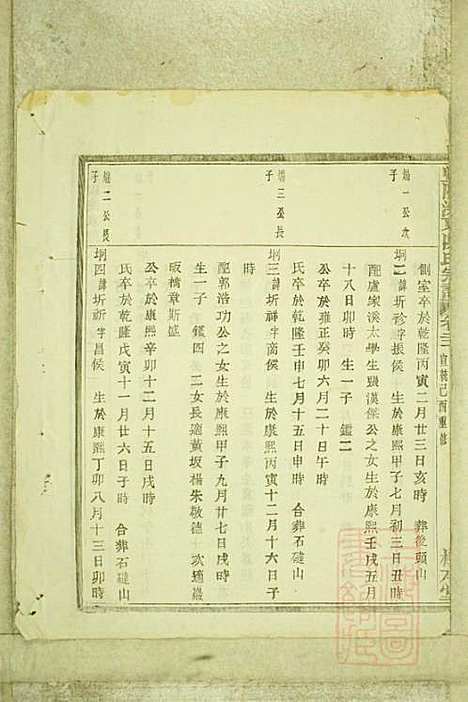 卷三 宣統己酉重修
側室卒於乾隆丙寅二月廿三日亥時 葬後頭山
㘭一公次子
坰二諱圻袗字振候 生於康熙甲子七月初三日丑時
配盧家溪太學生張漢傑公之女生於康熙壬戌五月
十八日卯時 生一子 鑑二
公卒於雍正癸卯六月二十日午時
氏卒於乾隆壬申七月十五日申時 合葬石磋山
三公長子
坰三諱圻祥字商候 生於康熙丙寅十二月十六日子
時
配郭浩功公之女生於康熙甲子九月廿七日戌時
生一子 鑑四 二女長適黃坂楊朱敬德 次適嚴
坂橋章斯盛
公卒於康熙辛卯十二月十五日戌時
氏卒於乾隆戊寅十一月廿六日子時 合葬石磋山
二公長子
坰四諱圻祈字昌候 生於康熙丁卯八月十三日卯時